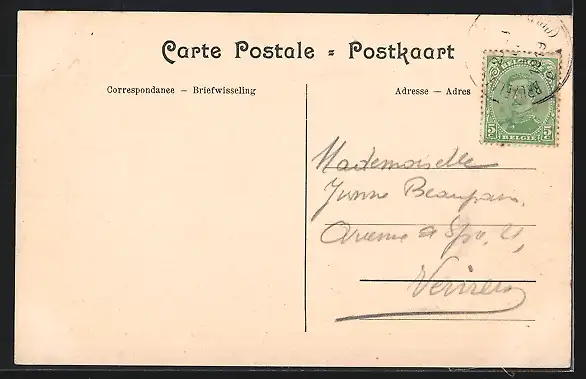 Carte Postale = Postkaart
Correspondanee – Briefwisseling
Adresse – Adres
BELGIQUE
5 5
BELGIË
Mademoiselle
Yvonne Beaupain,
Avenue de Spa, 21,
Verviers